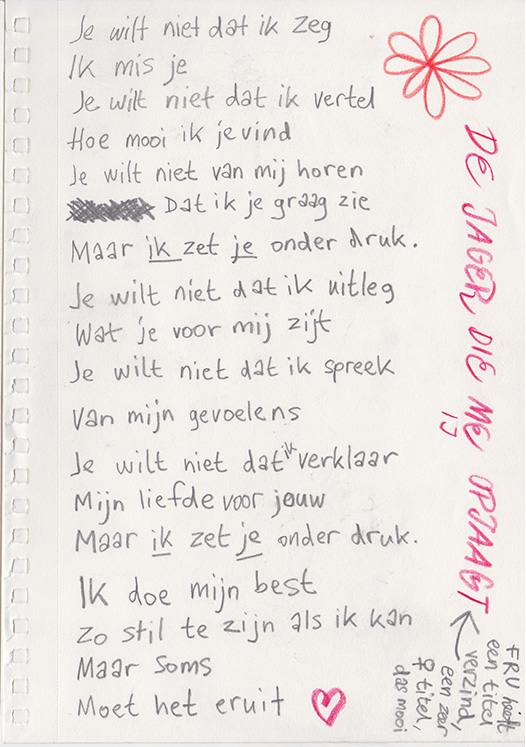 Je wilt niet dat ik zeg
Ik mis je
Je wilt niet dat ik vertel
Hoe mooi ik je vind
Je wilt niet van mij horen
Dat ik je graag zie
Maar ik zet je onder druk.
Je wilt niet dat ik uitleg
Wat je voor mij zijt
Je wilt niet dat ik spreek
Van mijn gevoelens
Je wilt niet dat ik verklaar
Mijn liefde voor jouw
Maar ik zet je onder druk.
Ik doe mijn best
Zo stil te zijn als ik kan
Maar soms
Moet het eruit
DE JAGER DIE ME OPJAAGT
IJ
FRU heeft
een titel
verzind,
een zeer
♀ titel,
das mooi